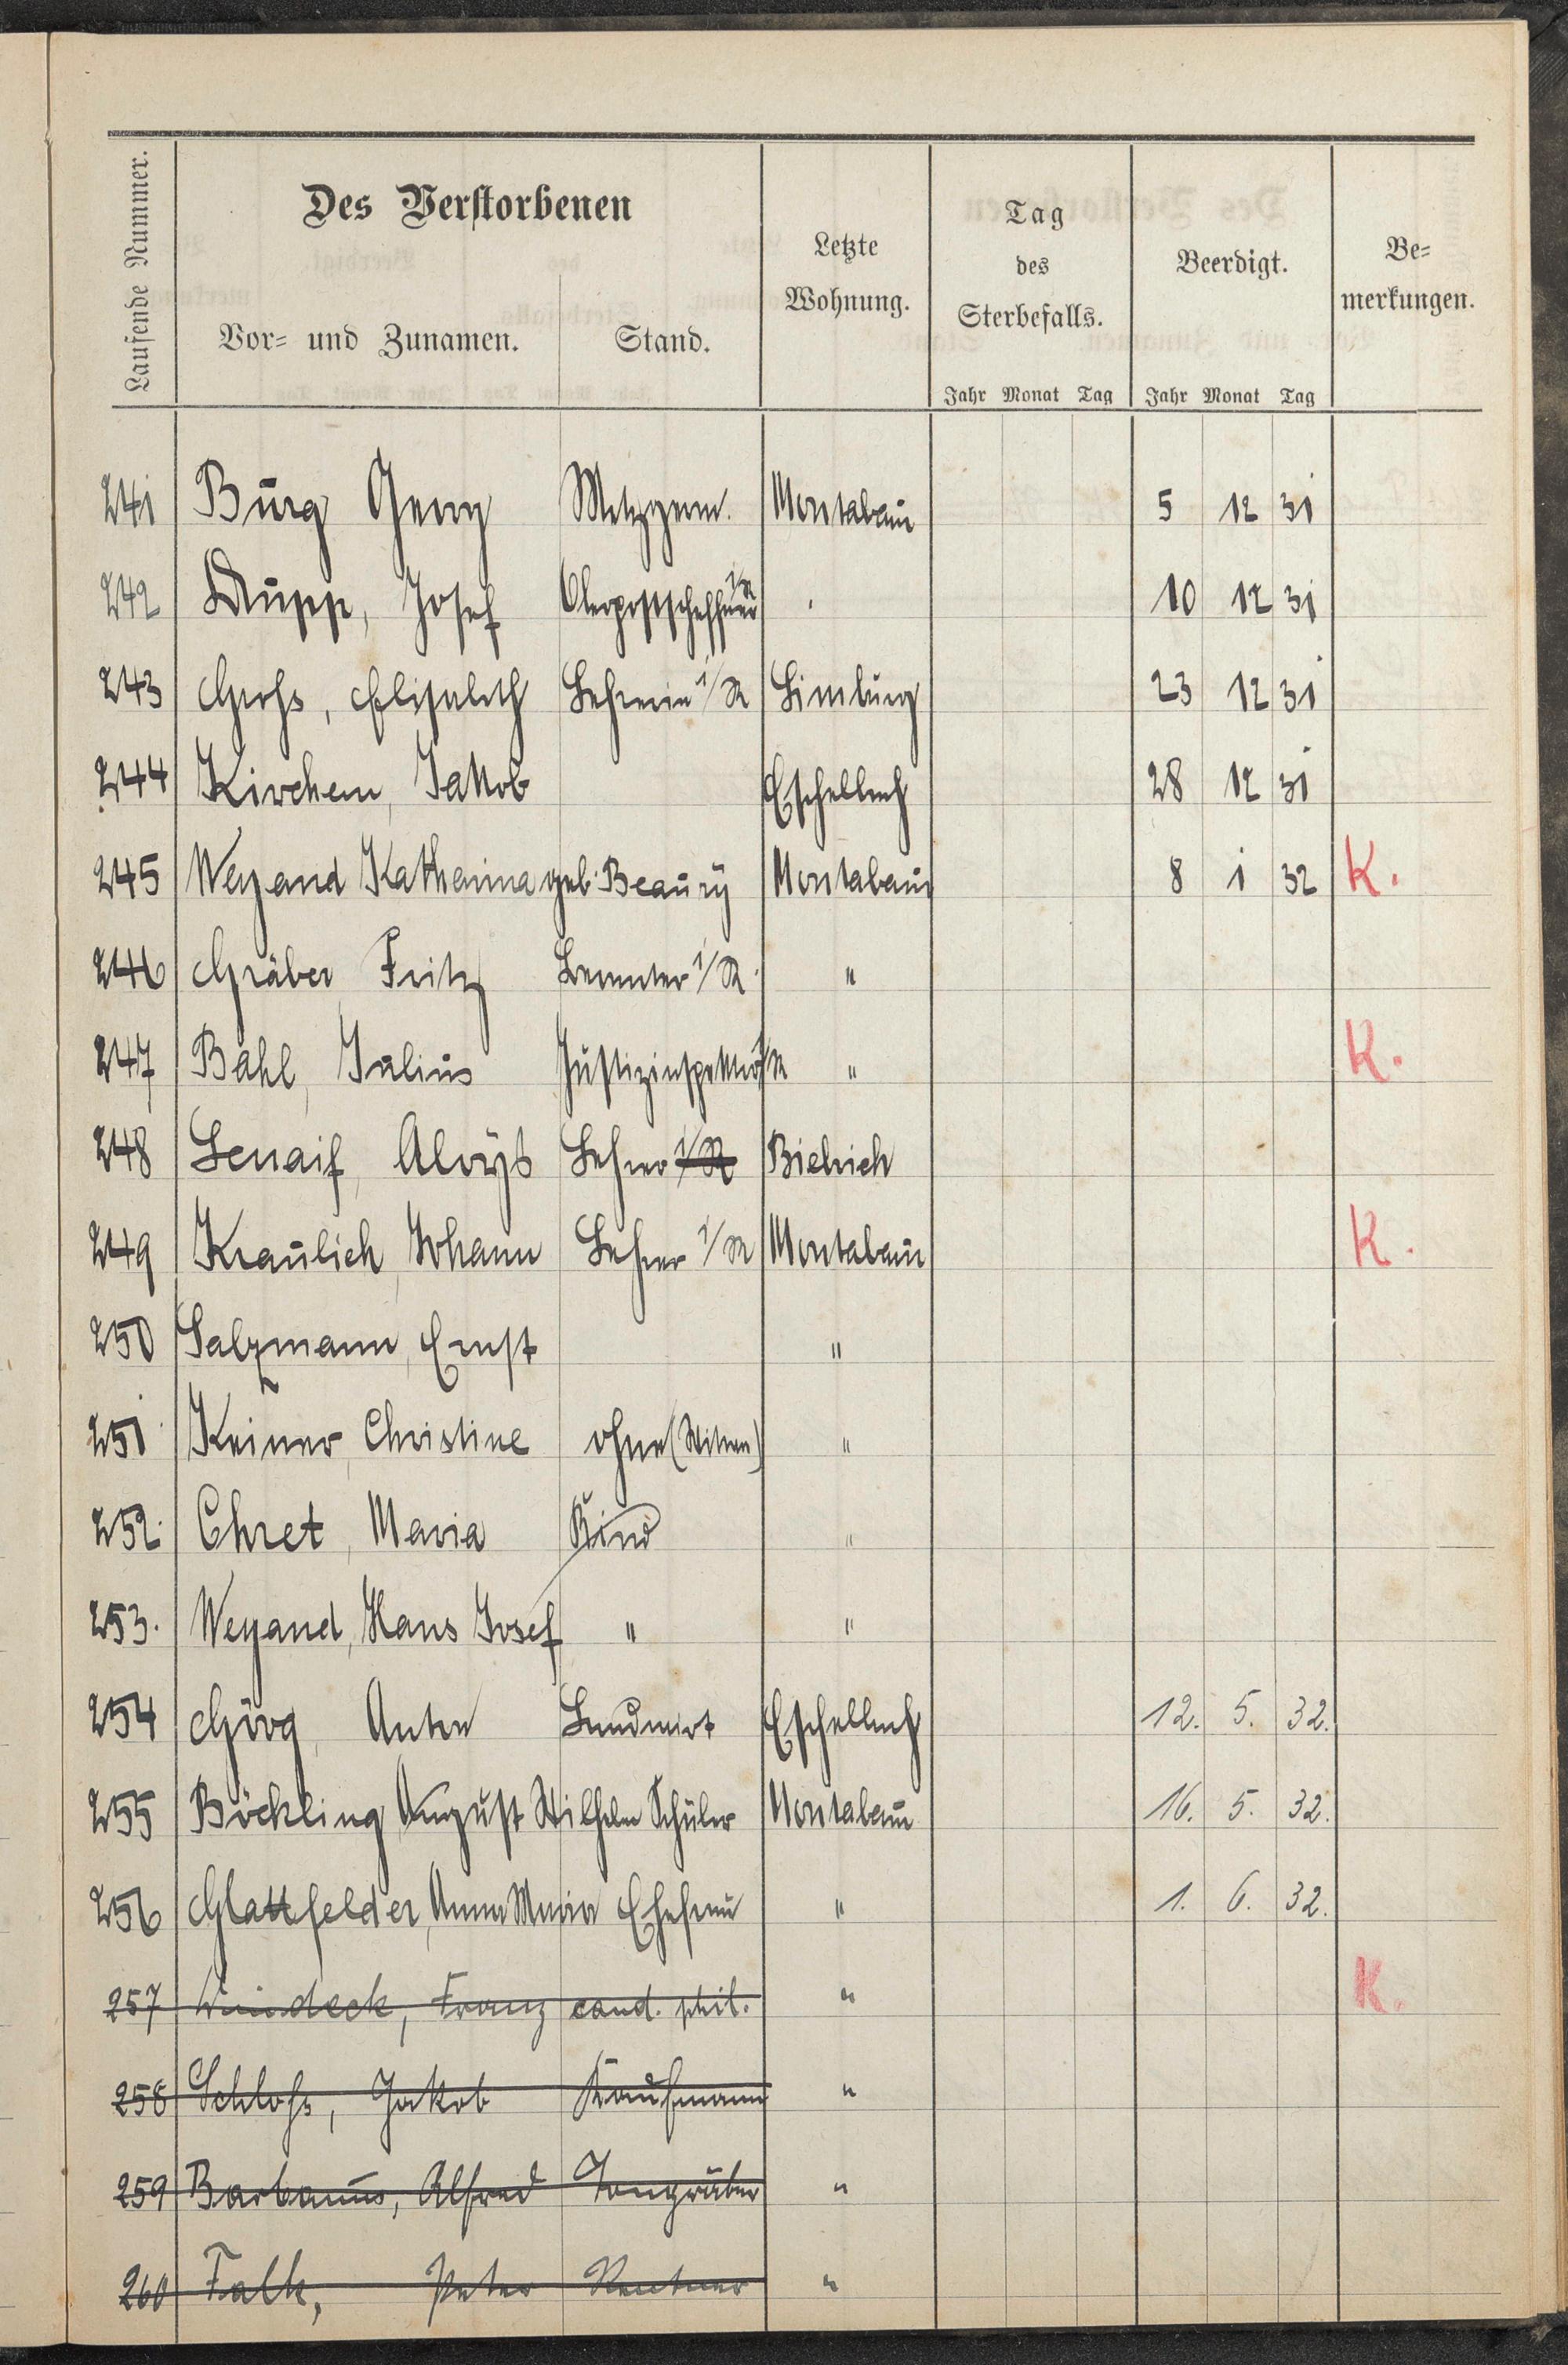 Laufende Nummer.
Des Verstorbenen
Vor- und Zunamen. Stand.
Letzte Wohnung.
Tag des Sterbefalls.
Beerdigt.
Be-
merkungen.
Jahr Monat Tag Jahr Monat Tag
241 Burg Georg Metzgerm. Montabaur 5 12 31
242 Josef Oberpostschaffner i/R " 10 12 31
243 Groß, Elisabeth Lehrerin i/R Limburg 23 12 31
244 Kirchem, Jakob Eschelbach 28 12 31
245 Weyand Katharina geb. Beaury Montabaur 8 1 32 K.
246 Gräber Fritz Beamter i/R. "
247 Bahl, Julius Justizinspektor i/R " K.
248 Lenaif, Aloys Lehrer i/R Biebrich
249 Kraulich, Johann Lehrer i/R Montabaur K.
250 Salzmann, Ernst "
251 Keiner, Christine ohne (Witwe) "
252. Ehret, Maria Kind "
253. Weyand, Hans Josef " "
254 Görg, Anton Landwirt Eschelbach 12. 5. 32.
255 Böckling, August Wilhelm Schüler Montabaur 16. 5. 32.
256 Glattfelder, Anna Maria Ehefrau " 1. 6. 32.
257 Windeck, Franz cand. phil. " K.
258 Schloß, Jakob Kaufmann "
259 Alfred Tongräber "
260 Falk, Peter Rentner "